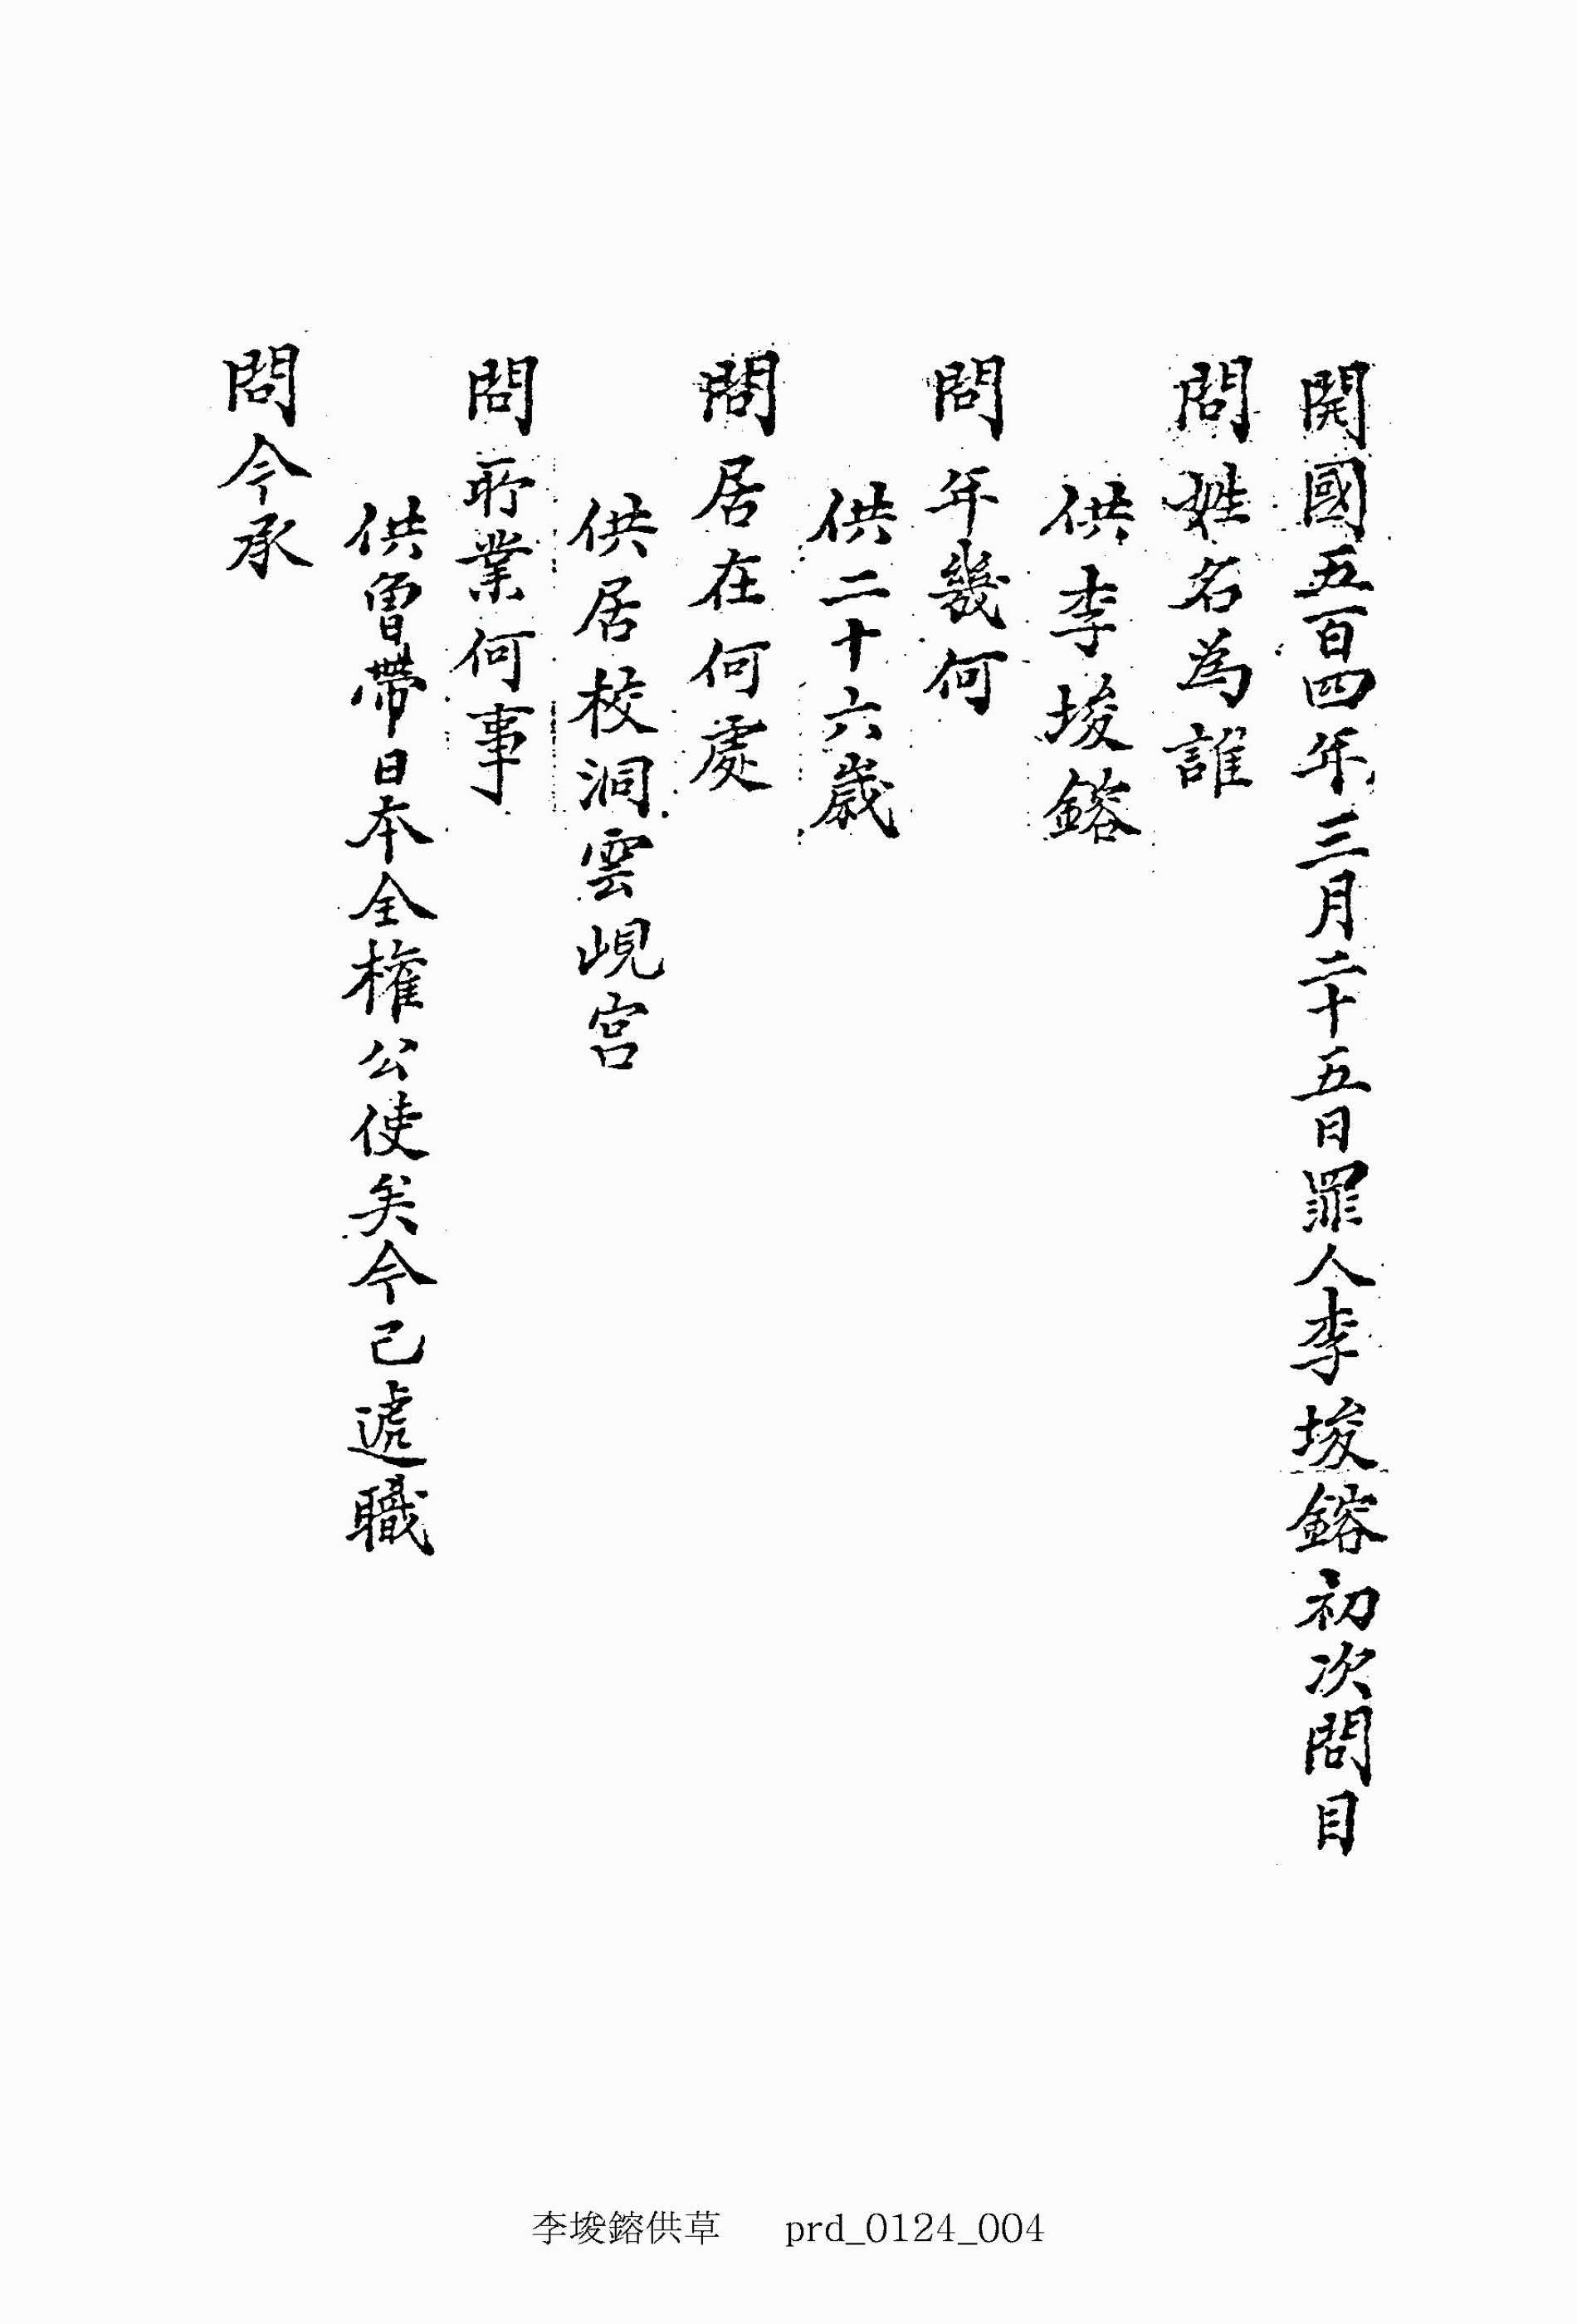 開國五百四年三月二十五日罪人李埈鎔初次問目
問姓名為誰
供李埈鎔
問年幾何
供二十六歲
問居在何處
供居校洞雲峴宮
問所業何事
供曾帶日本全權公使矣今已遞職
問今承
李埈鎔供草 prd_0124_004